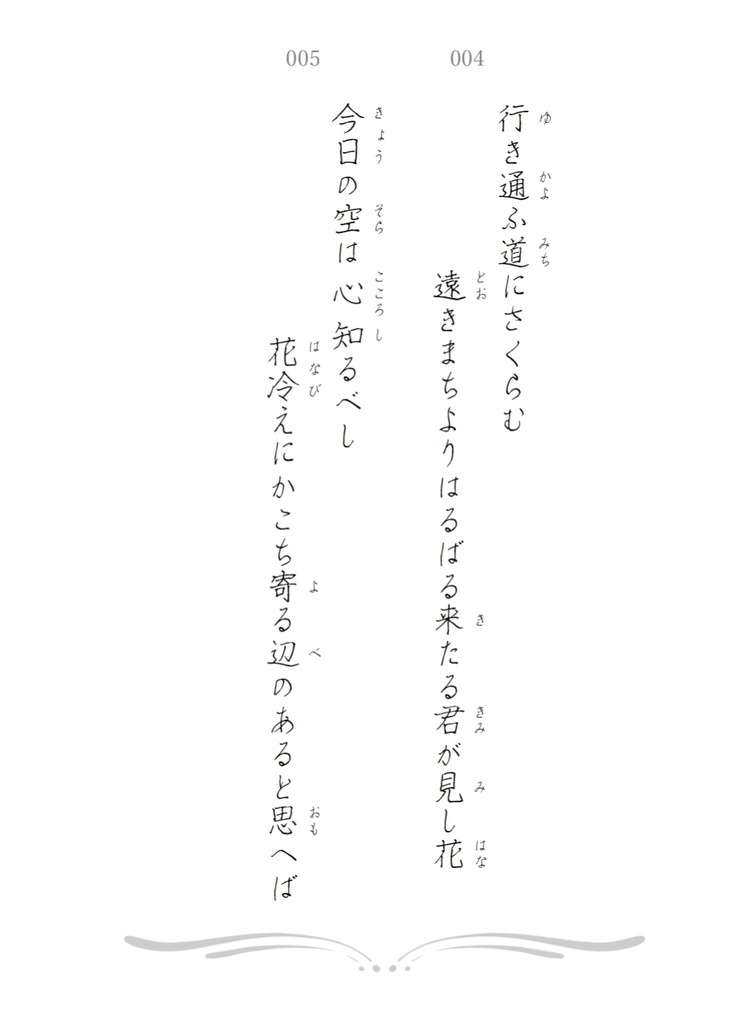 004
行き通ふ道にさくらむ
遠きまちよりはるばる来たる君が見し花
005
今日の空は心知るべし
花冷えにかこち寄る辺のあると思へば